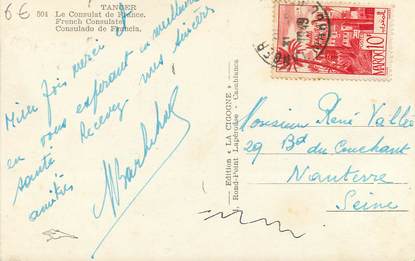 6E
TANGER
504 Le Consulat de France.
French Consulate.
Consulado de Francia.
Mille fois merci
en vous espérant en meilleure
santé Recevez mes sincères
amitiés
MAROC 10F
Edition "LA CIGOGNE"
, Rond-Point Lapérouse - Casablanca
Monsieur René Vallée
29 Bd du Couchant
Nanterre
Seine